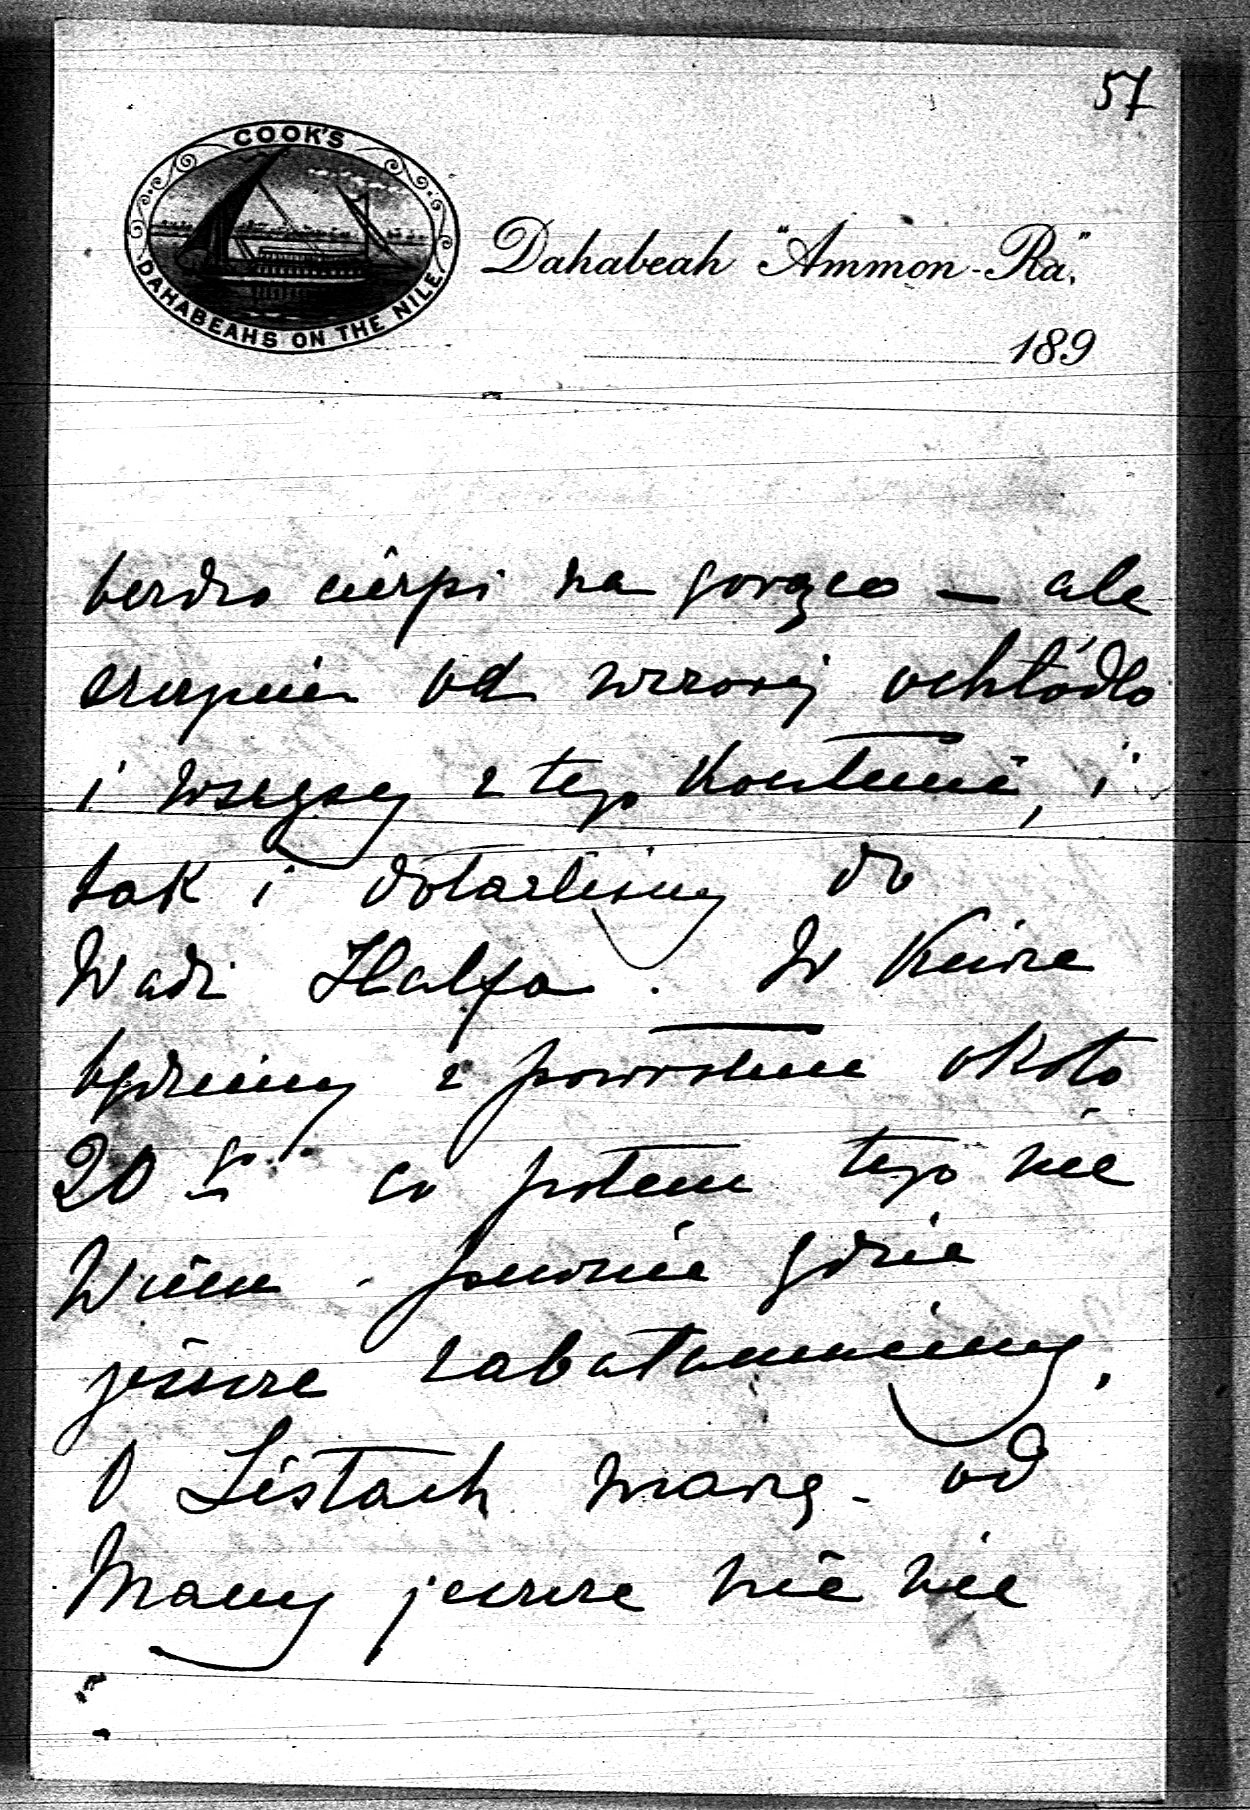 57
COOK'S
DAHABEAHS ON THE NILE
Dahabeah "Ammon-Ra,"
189
bardzo cierpi na gorąco — ale
od wczoraj ochłódło
i wszyscy z tego kontenci, i
tak i dotarliśmy do
Wadi Halfa. W Kairze
będziemy z powrotem około
20 go co potem tego nie
wiem - pewnie gdzie
jeszcze zabałamucimy.
O Listach marzę - od
Mamy jeszcze nic nie